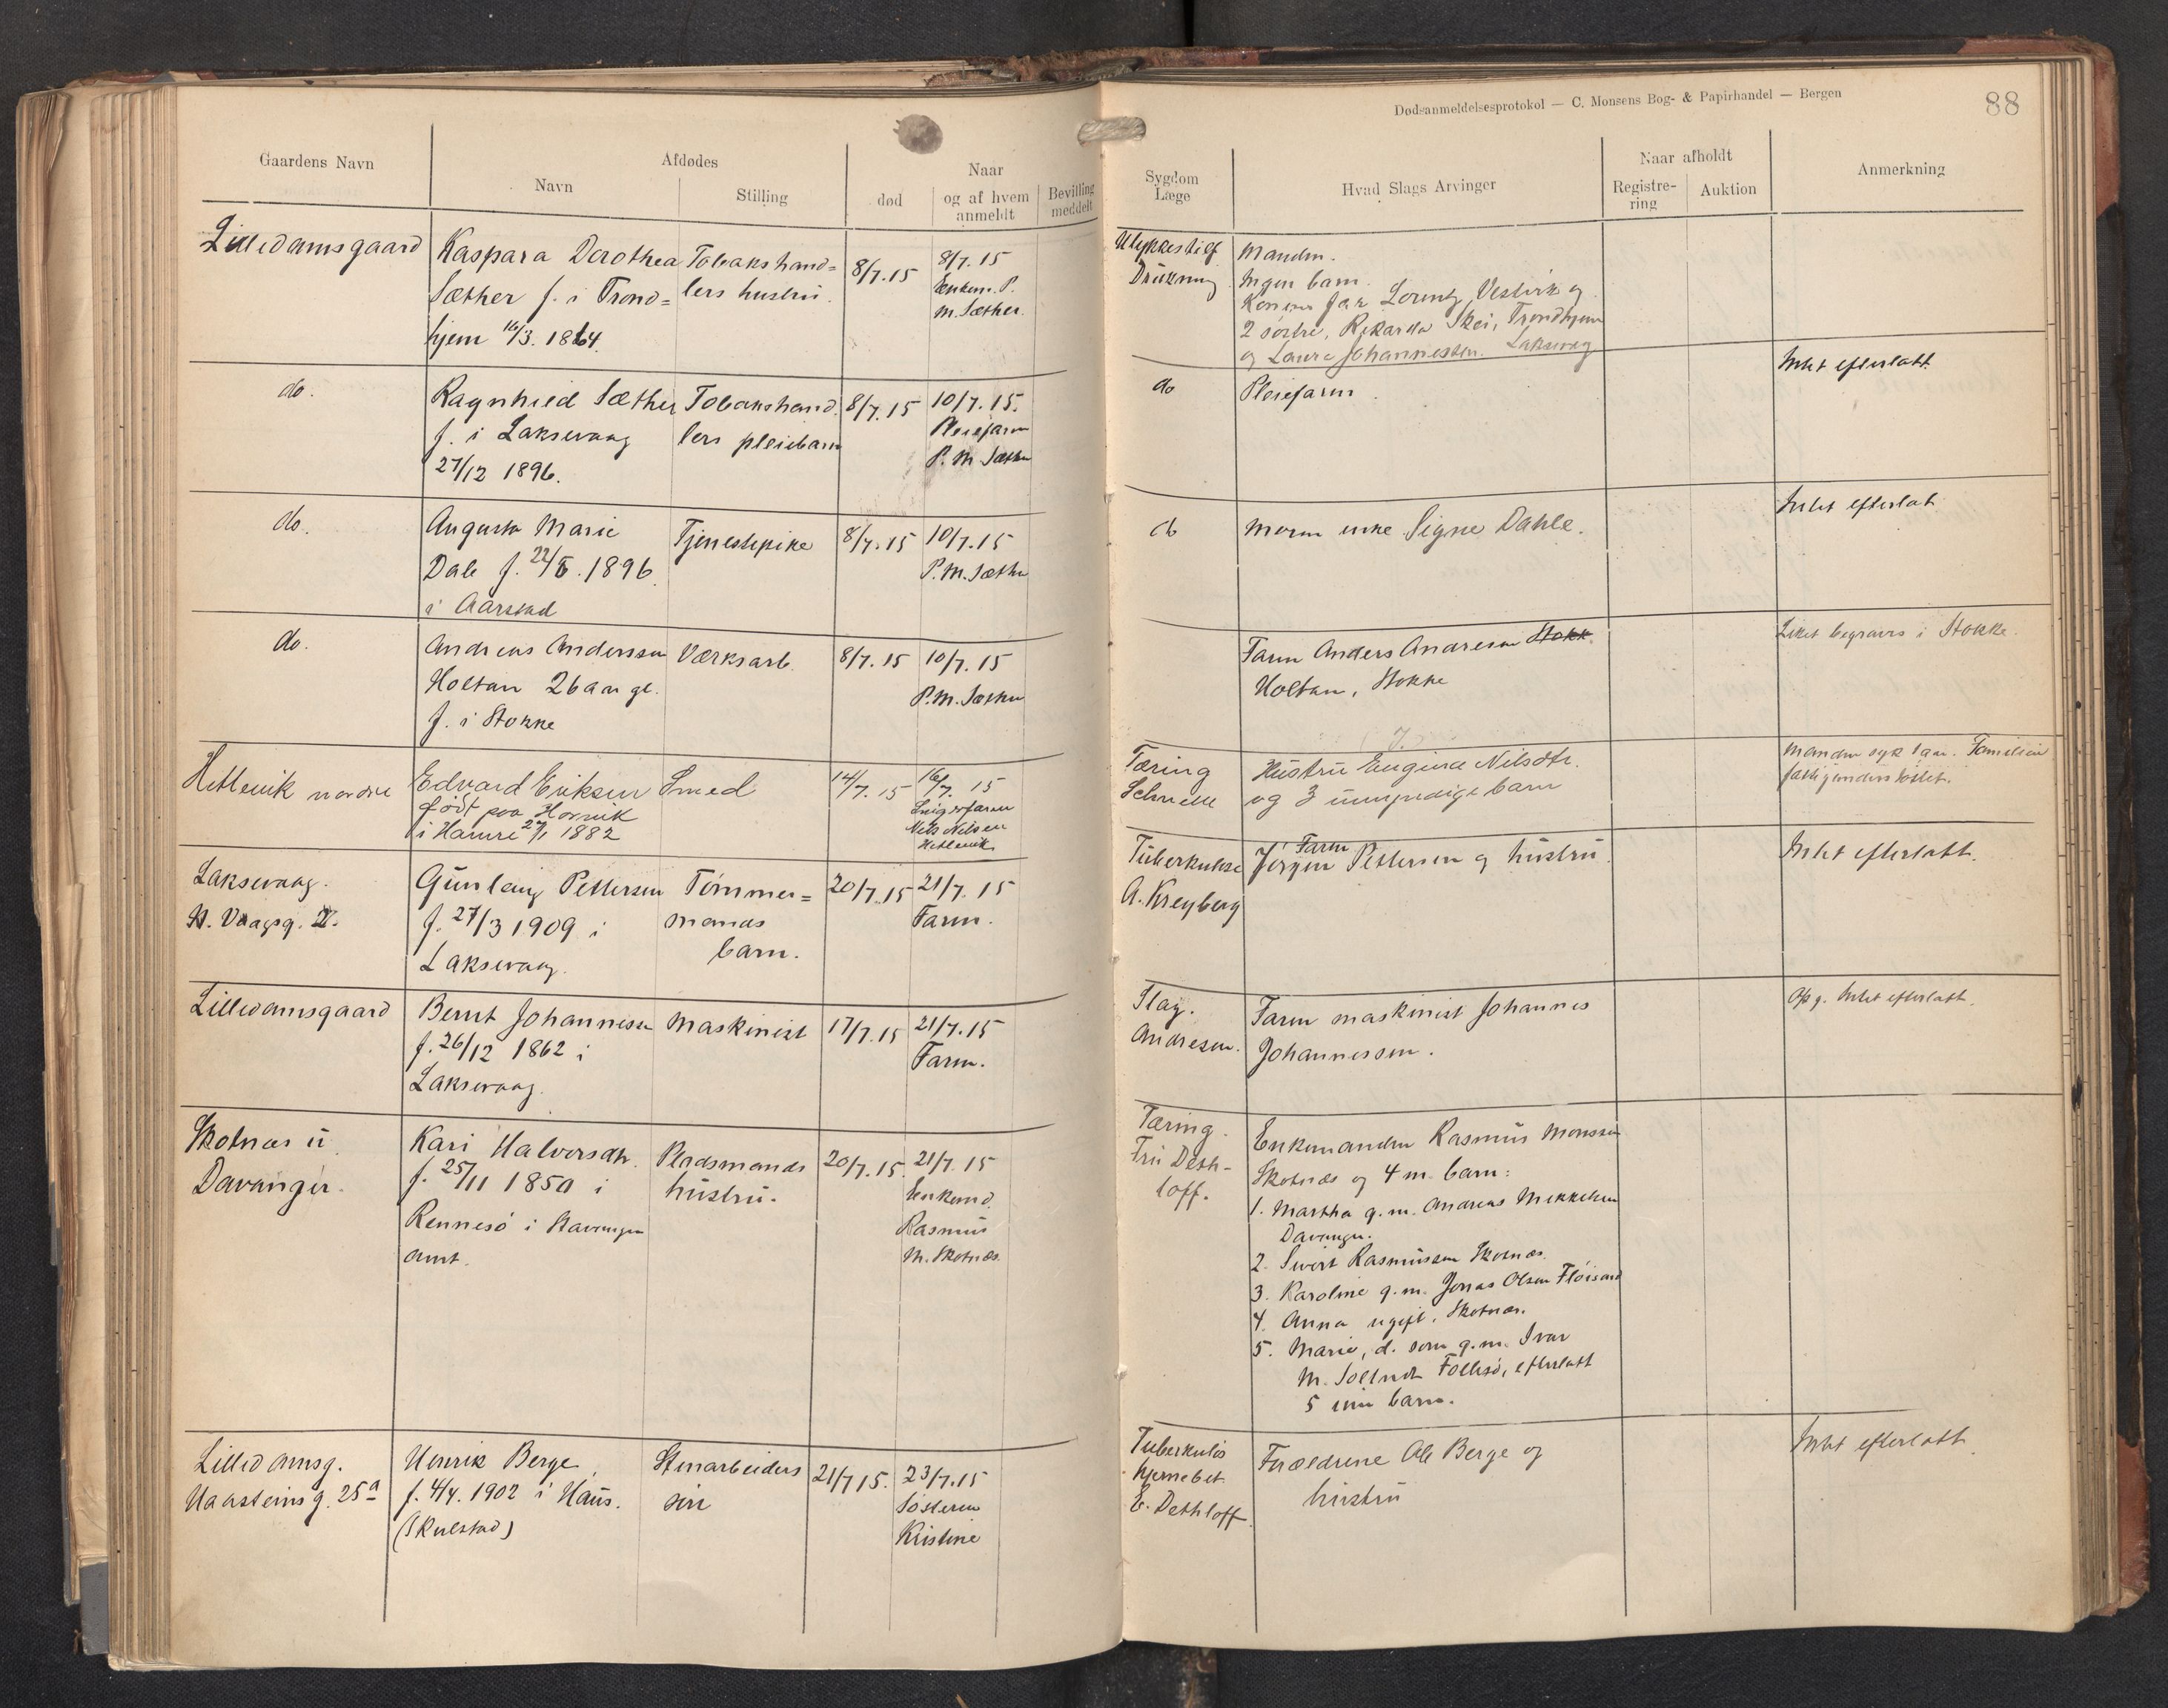 Dødsanmeldelsesprotokol — C. Monsens Bog- & Papirhandel — Bergen
88
Gaardens Navn
Afdødes
Navn
Stilling
Naar
død
og af hvem anmeldt
Bevilling meddelt
Sygdom Læge
Hvad Slags Arvinger
Naar afholdt
Registrering
Auktion
Anmerkning
Lilledamsgaard
Kaspara Dorothea
Sæther f. i Trond=
hjem 16/3. 1864.
Tobakshand=
lers hustru.
8/7.15
8/7. 15
Enkem. P.
M. Sæther.
Ulykkestilf.
Drukning
Manden.
Ingen barn.
Lorentz Vestvik og
2 søstre, Rikarda Skei, Trondhjem
og Laura Johannessen. Laksevaag
do.
Ragnhild Sæther
f. i Laksevaag
27/12 1896.
Tobakshand.
lers pleiebarn
8/7.15
10/7.15.
Pleiefaren
P. M. Sæther
do
Pleiefaren.
Intet efterlatt.
do.
Augusta Marie
Dale f. 22/5. 1896.
i Aarstad
Tjenestepike
8/7.15
10/7.15
P. M. Sæther
do
Moren enke Signe Dahle.
Intet efterlat
do.
Andreas Anderssen
Holtan 26 aar gl.
f. i Stokke
Værksarb.
8/7.15
10/7.15
P. M. Sæther
Faren Anders Andresen Stokk
Holtan, Stokke
Liket begraves i Stokke.
Hetlevik nordre
Edvard Eriksen
født paa Horsvik
i Hamre 27/1 1882
Smed
14/7. 15
16/7. 15
Svigerfaren
Nils Nilsen
Hetlevik
Tæring
Schnelle
Hustru Eugina Nilsdtr.
og 3 umyndige barn
Manden syk 1 aar. Familien
Laksevaag.
N. Vaagsg. 2.
Gunlaug Pettersen
f. 27/3 1909 i
Laksevaag.
Tømmer=
mands
barn.
20/7.15
21/7. 15
Faren.
Tuberkulose
A. Kreyberg
Faren
Jørgen Pettersen og hustru.
Intet efterlatt.
Lilledamsgaard
Bernt Johannesen
f. 26/12 1862 i
Laksevaag.
Maskinist
17/7.15
21/7.15
Faren.
Slag.
Andresen.
Faren maskinist Johannes
Johannessen.
Opg. Intet efterlatt.
Skotnæs u.
Davanger.
Kari Halvorsdtr.
f. 25/11 1850 i
Rennesø i Stavanger
amt.
Pladsmands
hustru.
20/7.15.
21/7. 15
Enkemd.
Rasmus
M. Skotnæs.
Tæring.
Fru Deth-
loff.
Enkemanden Rasmus Monssen
Skotnæs og 4 m. barn:
1. Martha g. m. Andreas Mikkelsen
Davanger.
2. Sivert Rasmussen Skotnæs.
3. Karoline g. m. Jonas Olsen Fløisand
4. Anna ugift. Skotnæs.
5. Marie, d. som g. m. Ivar
M. Follesø, efterlatt
5 um barn.
Lilledamsg.
Haasteinsg. 25a
Henrik Berge
f. 4/4. 1902 i Haus.
(Skulstad)
Stenarbeiders
søn
21/7 15.
23/7.15
Søsteren
Kristine
Tuberkuløs
hjernebet.
E. Dethloff.
Forældrene Ole Berge og
hustru
Intet efterlatt.